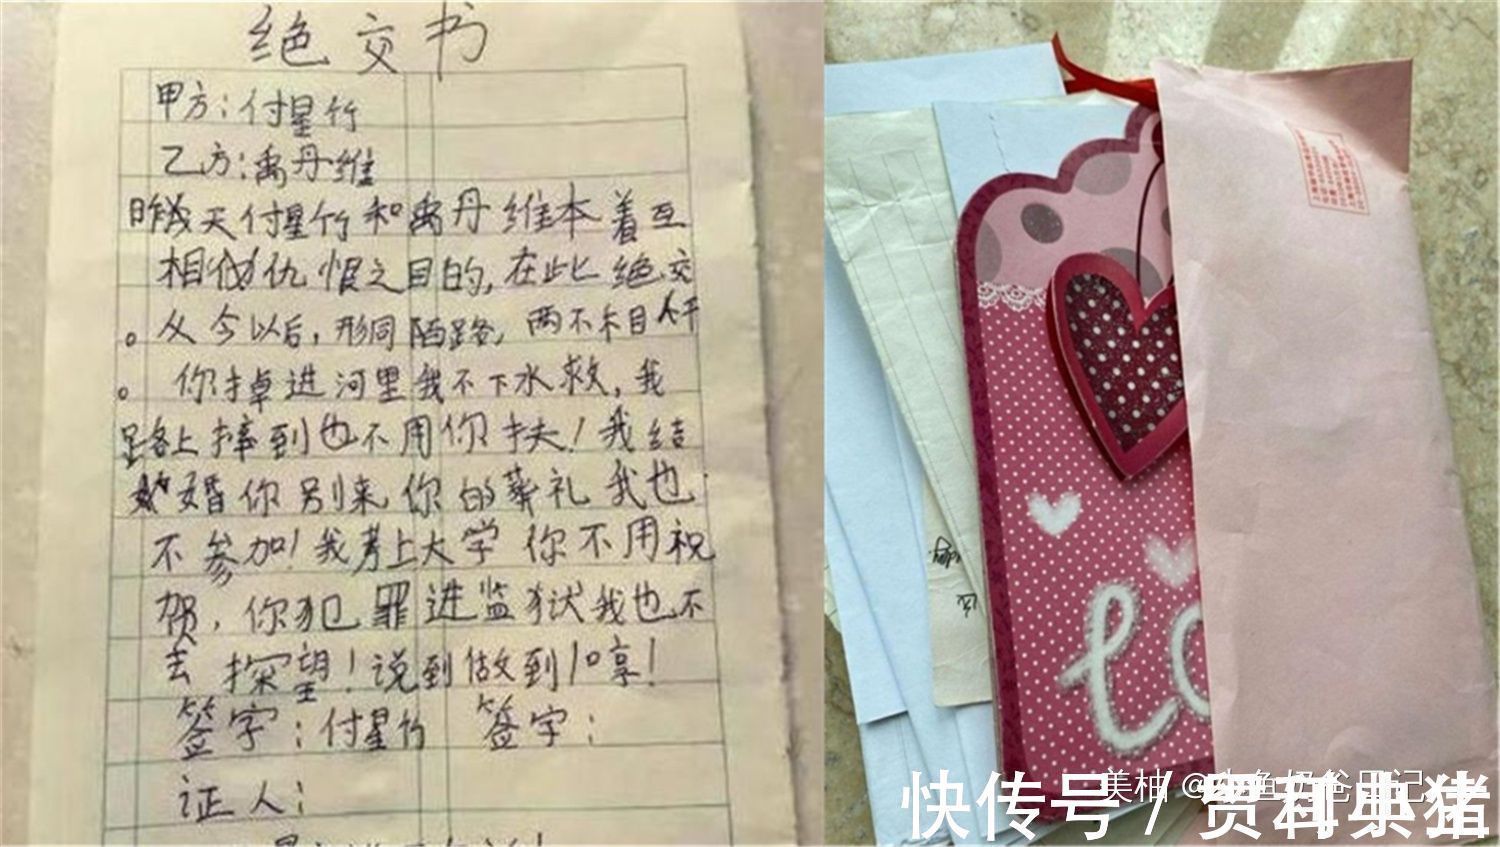 绝交书
甲方:付星竹
乙方:禹丹维
昨天付星竹和禹丹维本着互
相仇恨之目的,在此绝交
。从今以后,形同陌路,两不相干
。你掉进河里我不下水救,我
路上摔到也不用你扶!我结
婚你别来你的葬礼我也
不参加!我考上大学你不用祝
贺,你犯罪进监狱我也不
去探望!说到做到
签字:付星竹 签字:
证人:
lo
美柚
快传号/贾